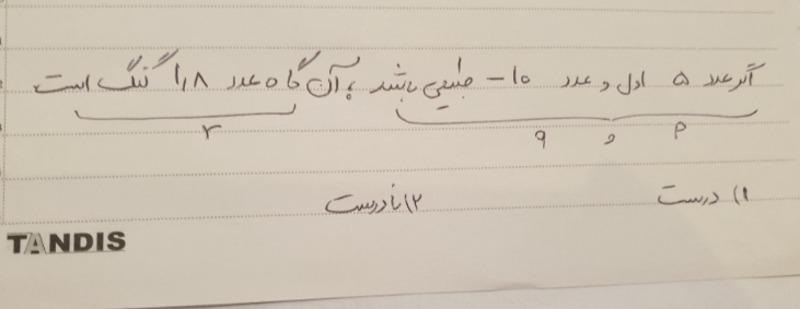 اگر عدد ۵ اول و عدد ۱۰- طبیعی باشد ، آن گاه عدد ۱٫۸ گنگ است
p و q r
۱) درست ۲) نادرست
TANDIS